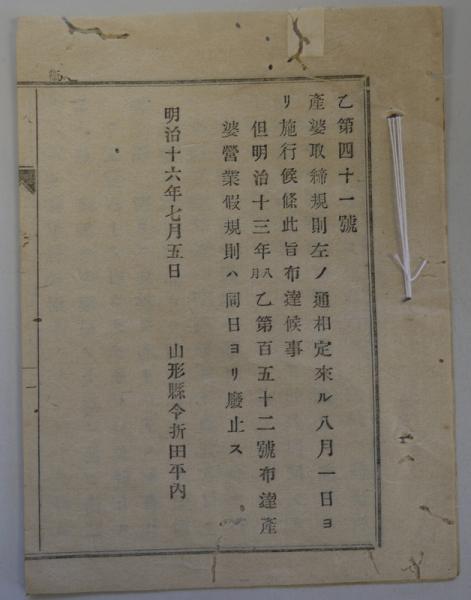 乙第四十一號
產婆取締規則左ノ通相定來ル八月一日ヨ
リ施行候條此旨布達候事
但明治十三年八月乙第百五十二號布達產
婆營業假規則ハ同日ヨリ廢止ス
明治十六年七月五日　山形縣令折田平內